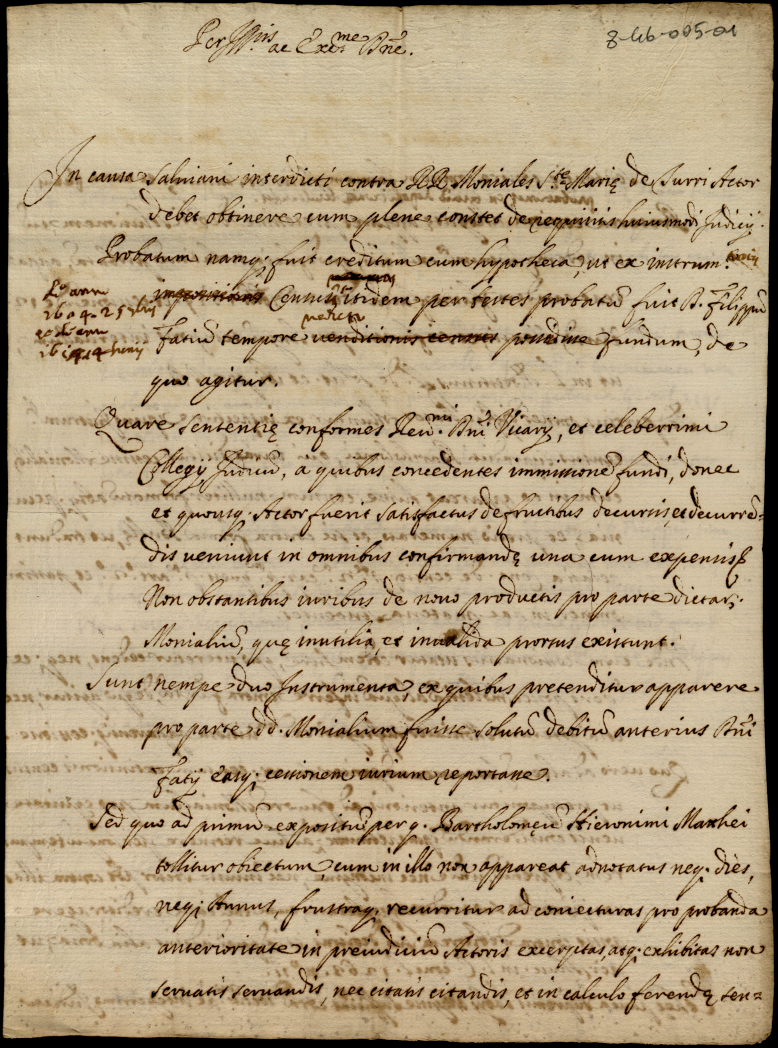 Per Ill.ris ac Exc.me D.ne.
8-46-005-01
In causa Salviani interdicti contra RR Moniales S.te Marię de Burri Actor
debet obtinere cum plene constet de requisitis huiusmodi Judicij.
Probatum namq; fuit creditum cum hypotheca, ut ex instrum.
impositionis census itidem per testes probatū fuit D. Filippū
Fatiū tempore venditionis census possedisse fundum, de
quo agitur.
Quare sententię conformes Reu.mi D.ni Vicarij, et celeberrimi
Collegij Judicū, a quibus concedentes immissionē fundi, donec
et quousq; Actor fuerit satisfactus de fructibus decursis, et decurrē=
dis veniunt in omnibus confirmandę una cum expensis
Non obstantibus iuribus de novo productis pro parte dictar;
Monialiū, quę inutilia, et invalida prorsus existunt.
Sunt nempe duo Instrumenta, ex quibus pretenditur apparere
pro parte dd. Monialium fuisse solutū debitū anterius D.ni
Fatij easq; cessionem iurium reportasse.
Sed quo ad primū expositū per q. Bartholomęū Hieronimi Marhei
tollitur obiectum, cum in illo non appareat adnotatus neq; dies,
neq; Annus, frustraq; recurritur ad coniecturas pro probanda
anterioritate in preiudiciū Actoris excerptas, atq; exhibitas non
servatis servandis, nec citatis citandis, et in calculo ferendę sen=